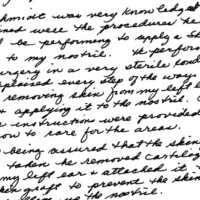 hmidt was very knowledge
ined were the procedures he
l be performing to apply a sk
to my nostril. He perform
urgery in a very sterile cond
xplained every step of the way.
removing skin from my left
& applying it to the nostril.
instructions were provided
ow to care for the areas.
being assured that the skin
taken he removed cartilag
my left ear & attached it
kin graft to prevent the skin
up the nostril.